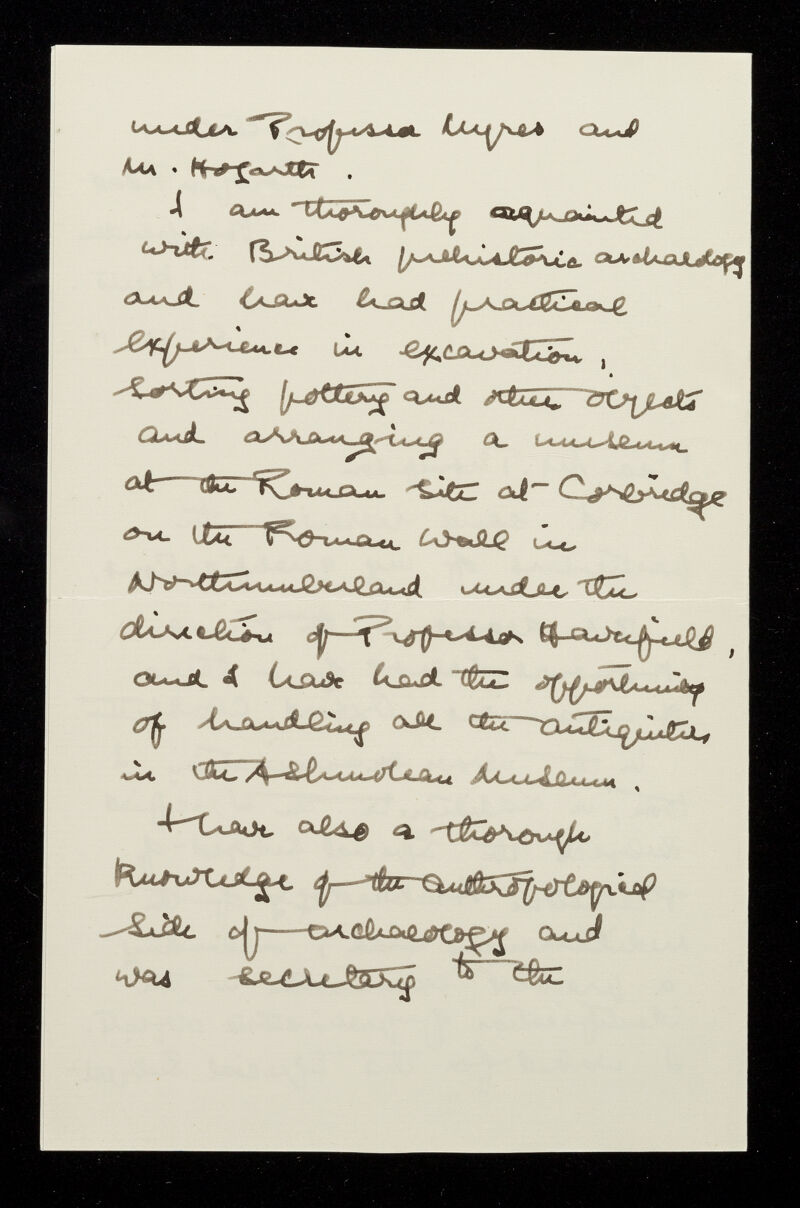 under Professor Myres and
Mr. Hogarth.
I am thoroughly aquainted
with British prehistoric archaeology
and have had practical
experience in excavation,
sorting pottery and other objects
and arranging a museum
at the Roman Site at Corbridge
on the Roman Wall in
Northumberland under the
direction of Professor Haverfield,
and I have had the opportunity
of handling all the antiquities
in the Ashmolean Museum.
I have also a thorough
knowledge of the anthropological
side of archaeology and
was secretary to the